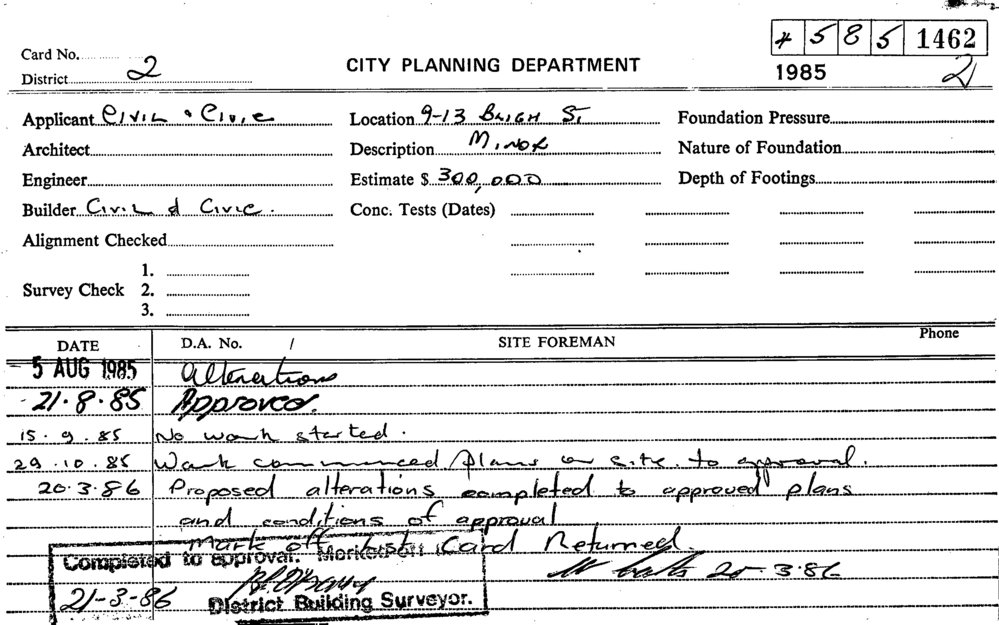 4 5 8 5 1462
Card No.
District 2
CITY PLANNING DEPARTMENT
1985
2
Applicant Civil & Civic
Location 9-13 Bligh St
Foundation Pressure
Architect
Description Minor
Nature of Foundation
Engineer
Estimate $ 300,000
Depth of Footings
Builder Civil & Civic.
Conc. Tests (Dates)
Alignment Checked
1.
Survey Check 2.
3.
DATE D.A. No. / SITE FOREMAN Phone
5 AUG 1985 Alterations
21.8.85 Approved.
15.9.85 No work started.
29.10.85 Work commenced plans on site to approval.
20.3.86 Proposed alterations completed to approved plans
and conditions of approval
Mark off Card Returned.
Completed to approval. Marked off
20.3.86
21-3-86 District Building Surveyor.